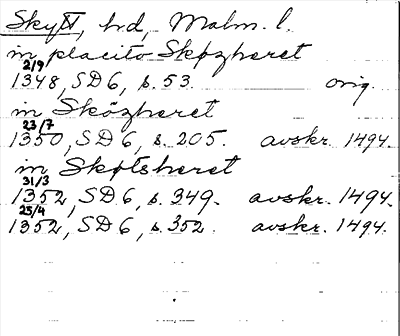 Skytt, hd, Malm. l.
in placito Skøzheret
2/9
1348, SD 6, s. 53. orig.
in Skózheret
23/7
1350, SD 6, s. 205. avskr. 1494.
in Skøtsheret
31/3
1352, SD 6, s. 349. avskr. 1494.
25/4
1352, SD 6, s. 352. avskr. 1494.